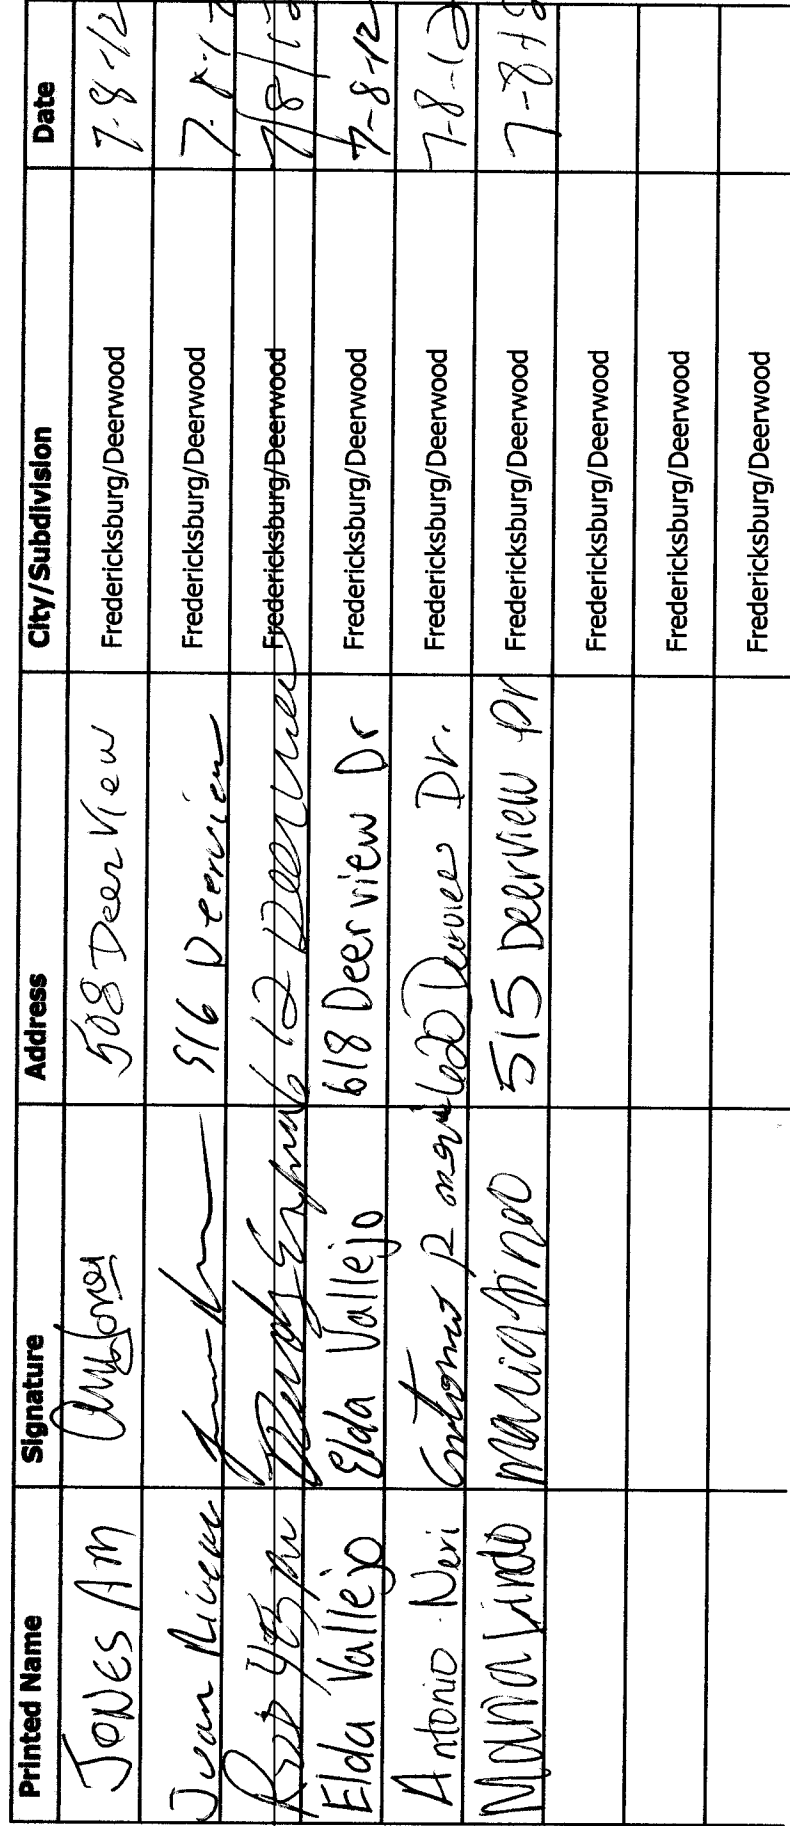 Printed Name Signature Address City/Subdivision Date
JONES AM AMJones 508 Deer View Fredericksburg/Deerwood 7-8-12
Juan Rivera 516 Deerview Fredericksburg/Deerwood 7-8-12
612 Deerview Fredericksburg/Deerwood 7/8/12
Elda Vallejo Elda Vallejo 618 Deerview Dr Fredericksburg/Deerwood 7-8-12
Antonio Neri Antonio R 620 Deerview Dr. Fredericksburg/Deerwood 7-8-12
Maria Lindo 515 Deerview Dr Fredericksburg/Deerwood 7-8-12
Fredericksburg/Deerwood
Fredericksburg/Deerwood
Fredericksburg/Deerwood